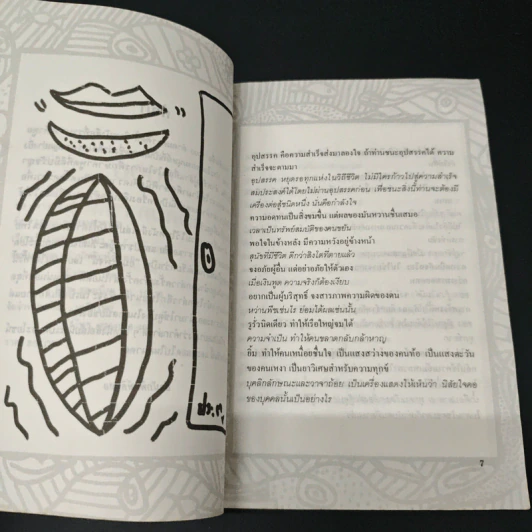 อุปสรรค คือความสำเร็จส่งมาลองใจ ถ้าท่านชนะอุปสรรคได้ ความ
สำเร็จจะตามมา
อุปสรรค หยุดรอทุกแห่งในวิถีชีวิต ไม่มีใครก้าวไปสู่ความสำเร็จ
สมประสงค์ได้โดยไม่ผ่านอุปสรรคก่อน เพื่อชนะสิ่งนี้ท่านจะต้องมี
เครื่องต่อสู้ชนิดหนึ่ง นั่นคือกำลังใจ
ความอดทนเป็นสิ่งขมขื่น แต่ผลของมันหวานชื่นเสมอ
เวลาเป็นทรัพย์สมบัติของคนขยัน
พอใจในข้างหลัง มีความหวังอยู่ข้างหน้า
สุนัขที่มีชีวิต ดีกว่าสิงโตที่ตายแล้ว
จงอภัยผู้อื่น แต่อย่าอภัยให้ตัวเอง
เมื่อเงินพูด ความจริงก็ต้องเงียบ
อยากเป็นผู้บริสุทธิ์ จงสารภาพความผิดของตน
หว่านพืชเช่นไร ย่อมได้ผลเช่นนั้น
รูรั่วนิดเดียว ทำให้เรือใหญ่จมได้
ความจำเป็น ทำให้คนขลาดกลับกล้าหาญ
ยิ้ม ทำให้คนเหนื่อยชื่นใจ เป็นแสงสว่างของคนท้อ เป็นแสงตะวัน
ของคนเหงา เป็นยาวิเศษสำหรับความทุกข์
บุคลิกลักษณะและวาจาถ้อย เป็นเครื่องแสดงให้เห็นว่า นิสัยใจคอ
ของบุคคลนั้นเป็นอย่างไร
7